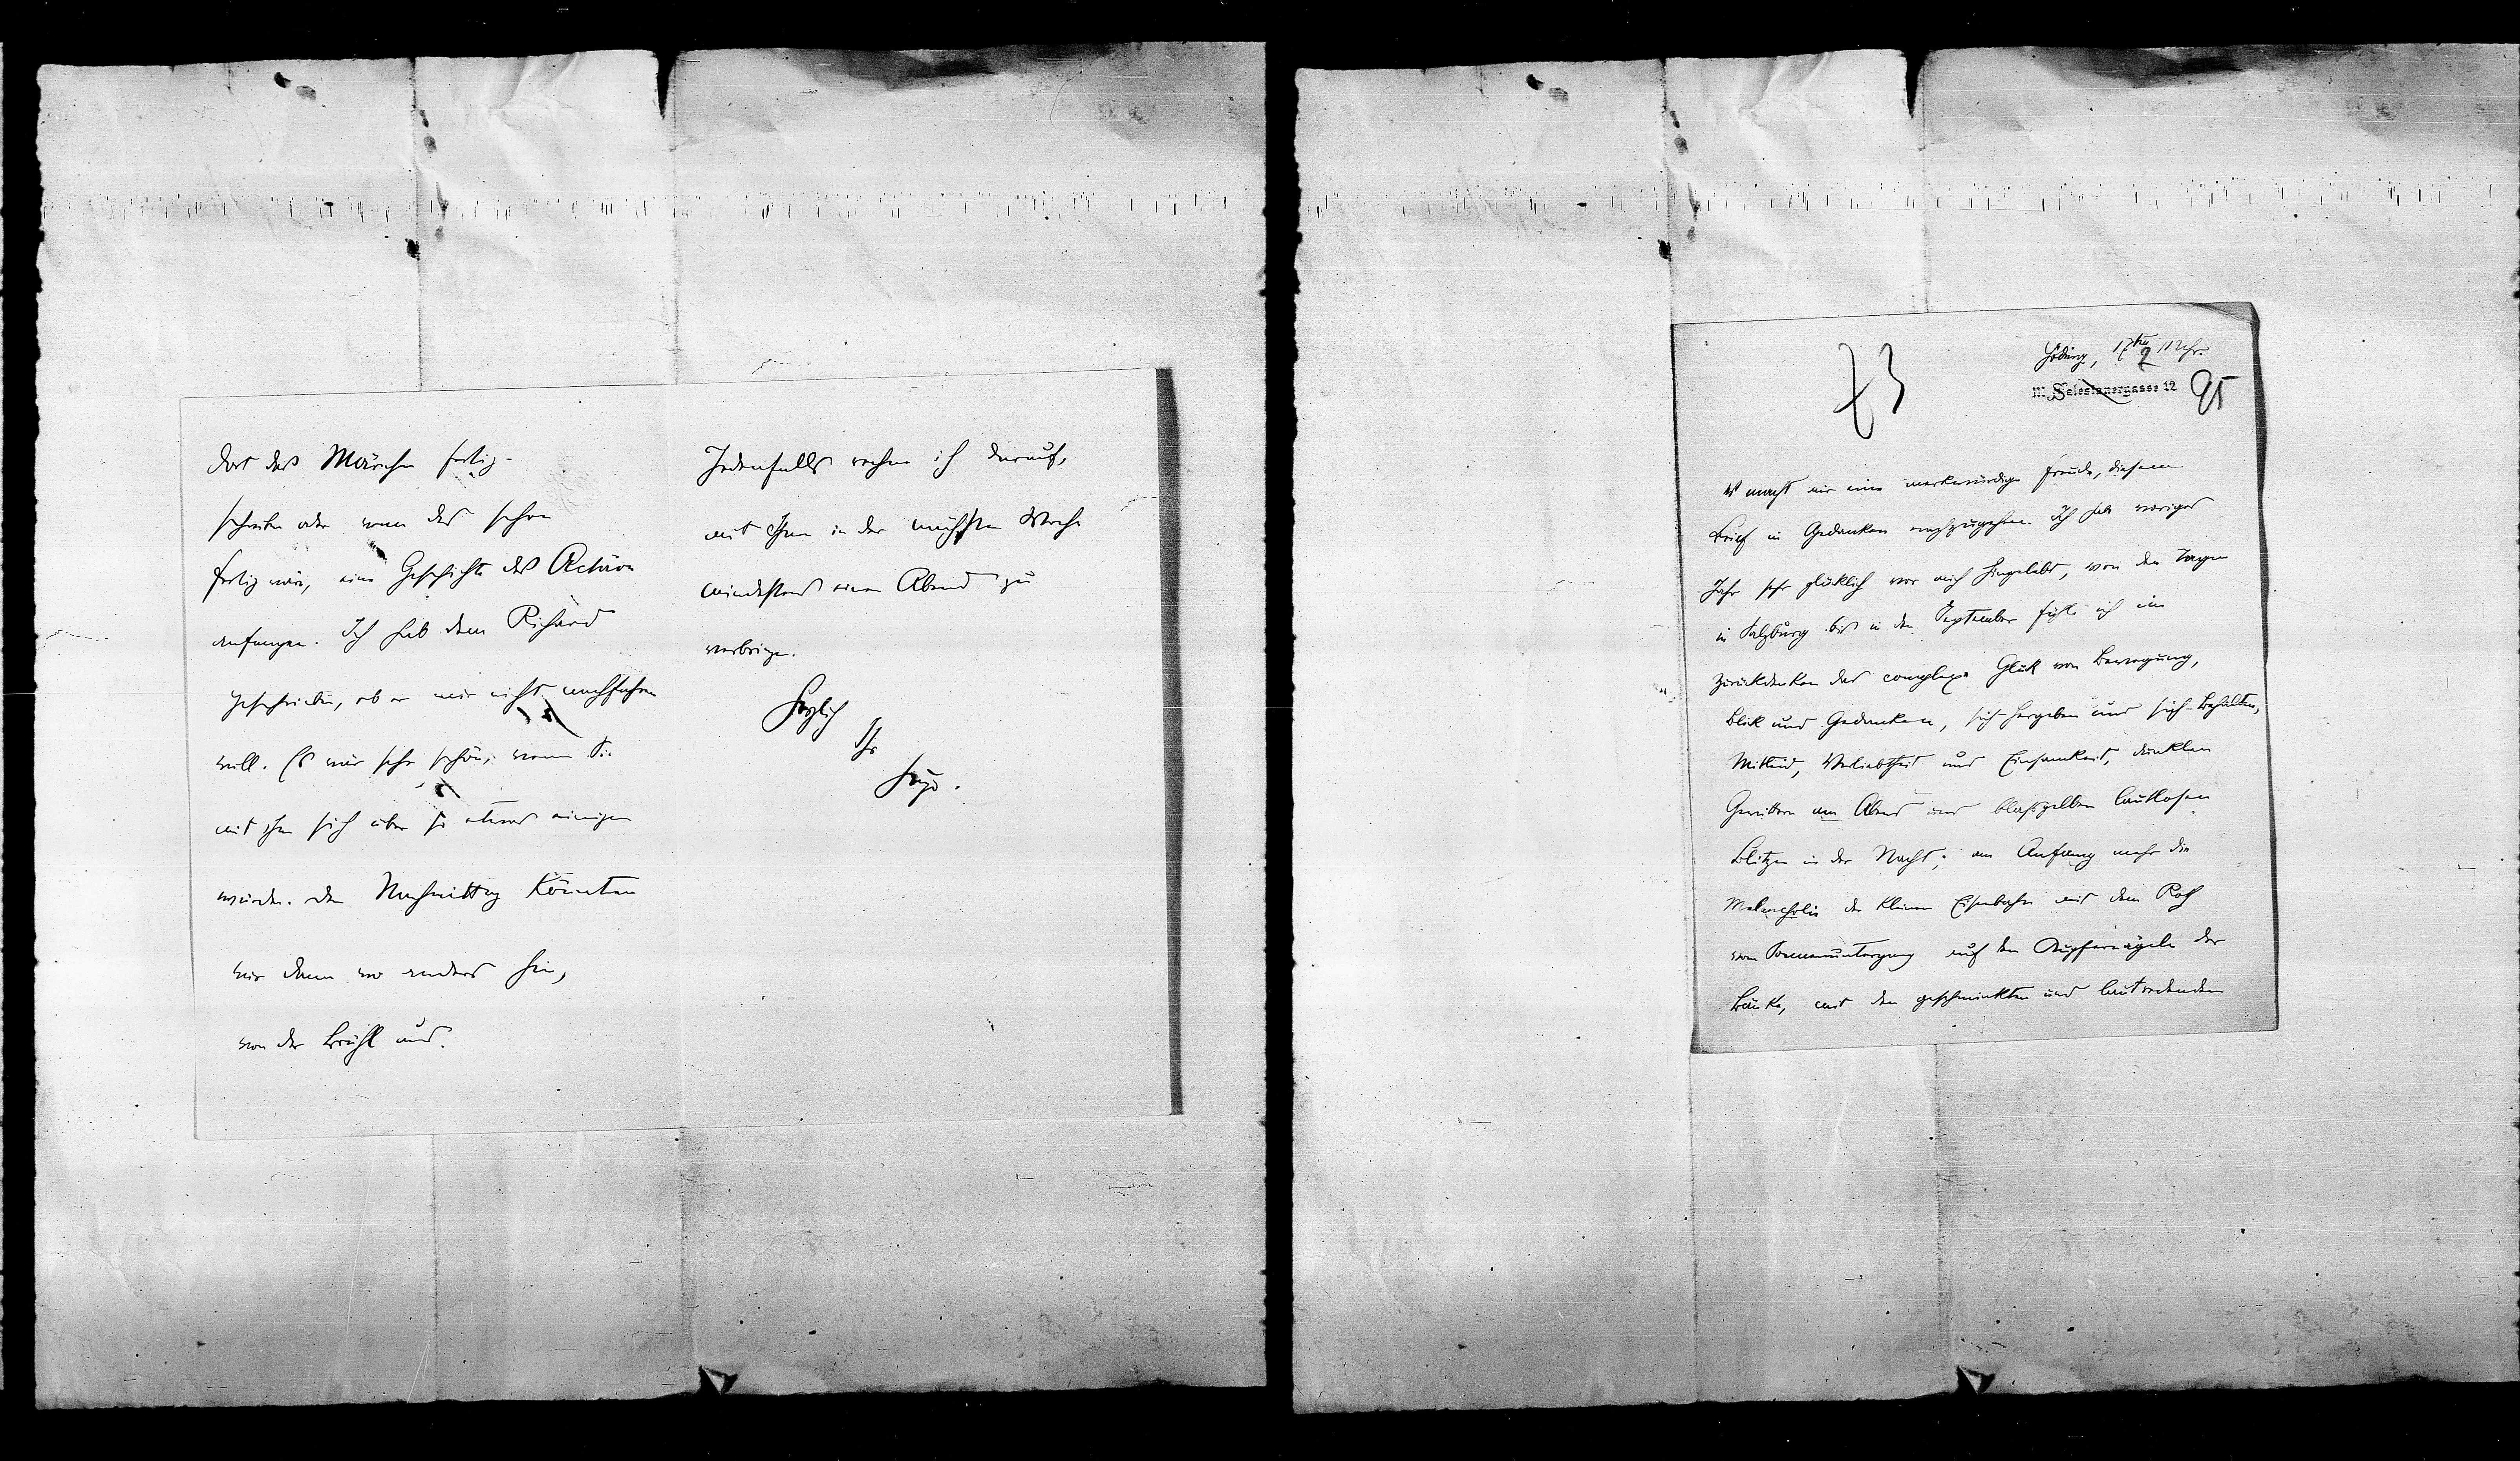 dort das Märchen fertig-
schreiben oder wenn das schon
fertig wär, eine Geschichte des Actäon
anfangen. Ich hab dem Richard
geschrieben, ob er mir nicht nachfahren
will. Es wär sehr schön, wenn Sie
mit ihm sich über so etwas einigen
würden. Den Nachmittag könnten
wir dann wo anders hin,
von der Brühl aus.
Jedenfalls rechne ich darauf,
mit Ihnen in der nächsten Woche
mindestens einen Abend zu
verbringen.
Herzlich
Ihr
Hugo.
73
Göding, 17ten
III. Salesianergasse 12
95
Es macht mir eine merkwürdige Freude, diesem
Brief in Gedanken nachzugehen. Ich hab voriges
Jahr sehr glücklich vor mich hingelebt, von den Tagen
in Salzburg bis in den September fühl ich im
Zurückdenken das complexe Glück von Bewegung,
Blick und Gedanken, sich-hergeben und sich-behalten,
Mitleid, Verliebtheit und Einsamkeit, dunklen
Gewittern am Abend und blaßgelben lautlosen
Blitzen in der Nacht; am Anfang mehr die
Melancholie der kleinen Eisenbahn mit dem Roth
vom Sonnenuntergang auf den Kupfernägeln der
Bänke, mit den geschminkten und lautredenden